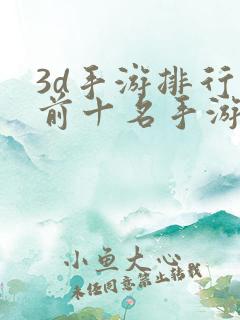 3d手游排行
前十名手游
小鱼大心
未经同意禁止转载